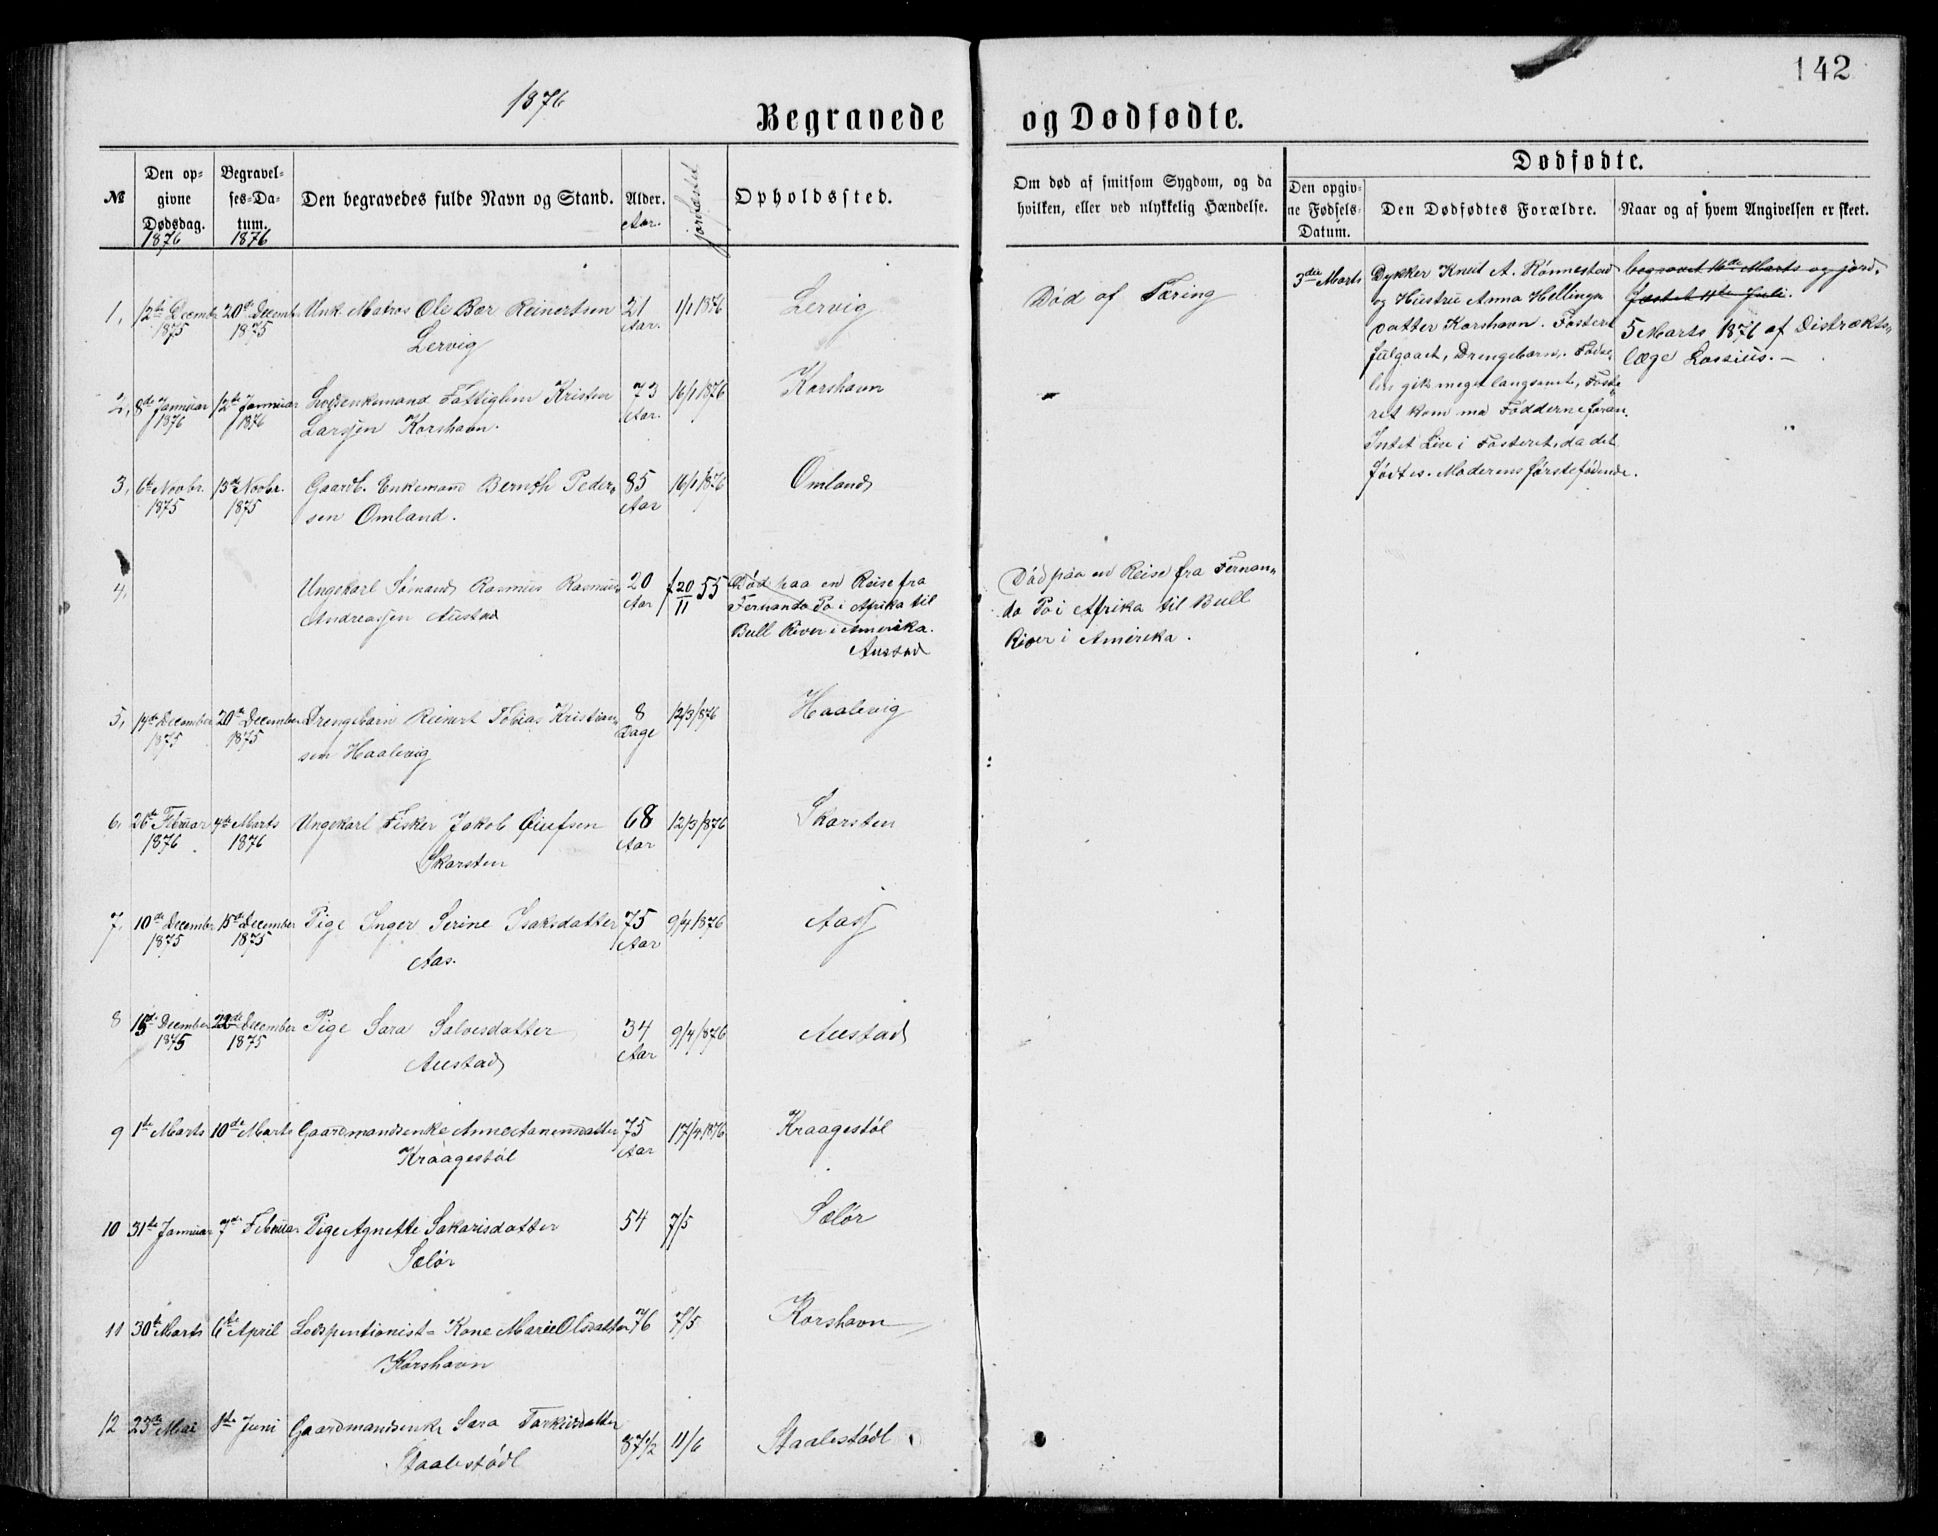 142
1876
Begravede og Dødfødte.
№
Den op-
givne
Dødsdag.
1876
Begravel-
ses-Da-
tum.
1876
Den begravedes fulde Navn og Stand.
Alder.
Aar.
jordfæstet
Opholdssted.
Om død af smitsom Sygdom, og da
hvilken, eller ved ulykkelig Hændelse.
Dødfødte.
Den opgiv-
ne Fødsels-
Datum.
Den Dødfødtes Forældre.
Naar og af hvem Angivelsen er skeet.
1, 12te Decembr 20de December Unk. Matros Ole Bær Reinertsen 21 1/1 1876 Lervig Død af Tæring
1875 1875 Lervig Aar.
2, 8de Januar 12te Januar Fattiglem Kristen 73 16/1 1876 Korshavn
1876 1876 Larsen Korshavn. Aar.
3, 6te Novbr. 13de Novbr. Gaardb. Enkemand Berngh Peder- 85 16/1 1876 Omland
1875 1875 sen Omland. Aar
4, Ungekarl Sømand Rasmus Rasmus 20 20/11 55 Død paa en Reise fra
Andreassen Austad Aar Fernando Po i Afrika til
Bull River i Amerika.
Austad
Død paa en Reise fra Fernan-
do Po i Afrika til Bull
River i Amerika.
5, 14de December 20de December Drengebarn Reinert Tobias Kristian- 8 12/3 1876 Haalevig
1875 1875 sen Haalevig Dage
6, 26de Februar 4de Marts Ungekarl Fisker Jakob 68 12/3 1876 Skarsten
1876 1876 Skarsten Aar
7, 10de Decembr 15de December Pige Inger Serine Isaksdatter 75 9/4 1876 Aas
1875 1875 Aas. Aar
8 15de December 22de December Pige Sara Salvesdatter 34 9/4 1876 Austad
1875 1875 Austad Aar
9 1ste Marts 10de Marts Gaardmandsenke Anne Aanensdatter 75 17/4 1876 Kraagestøl
Kraagestøl Aar
10 31te Januar 7de Februar Pige Agnette Sakarisdatter 54 7/5 Sælør
Sælør
11 30te Marts 6te April Lodspentionist- Kone Marie Olsdatter 76 7/5 Korshavn
Korshavn
12 23de Mai 1ste Juni Gaardmandsenke Sara Torkildatter 87 1/2 11/6 Staalestødl
Staalestødl
3die Marts
Dykker Knut A. Rønnestad
og Hustru Anna Hellings
datter Korshavn. Fosteret
fulgaaet, Drengebarn. Fødse-
len gik meget langsomt, Foste-
ret kom ma Fødderne foran.
Intet Live i Fosteret, da det
fødtes. Moderens førstefødende.
begravet 16de Marts og jord-
fæstet 11te Juli.
5 Marts 1876 af Distrikts-
læge Lossius. -